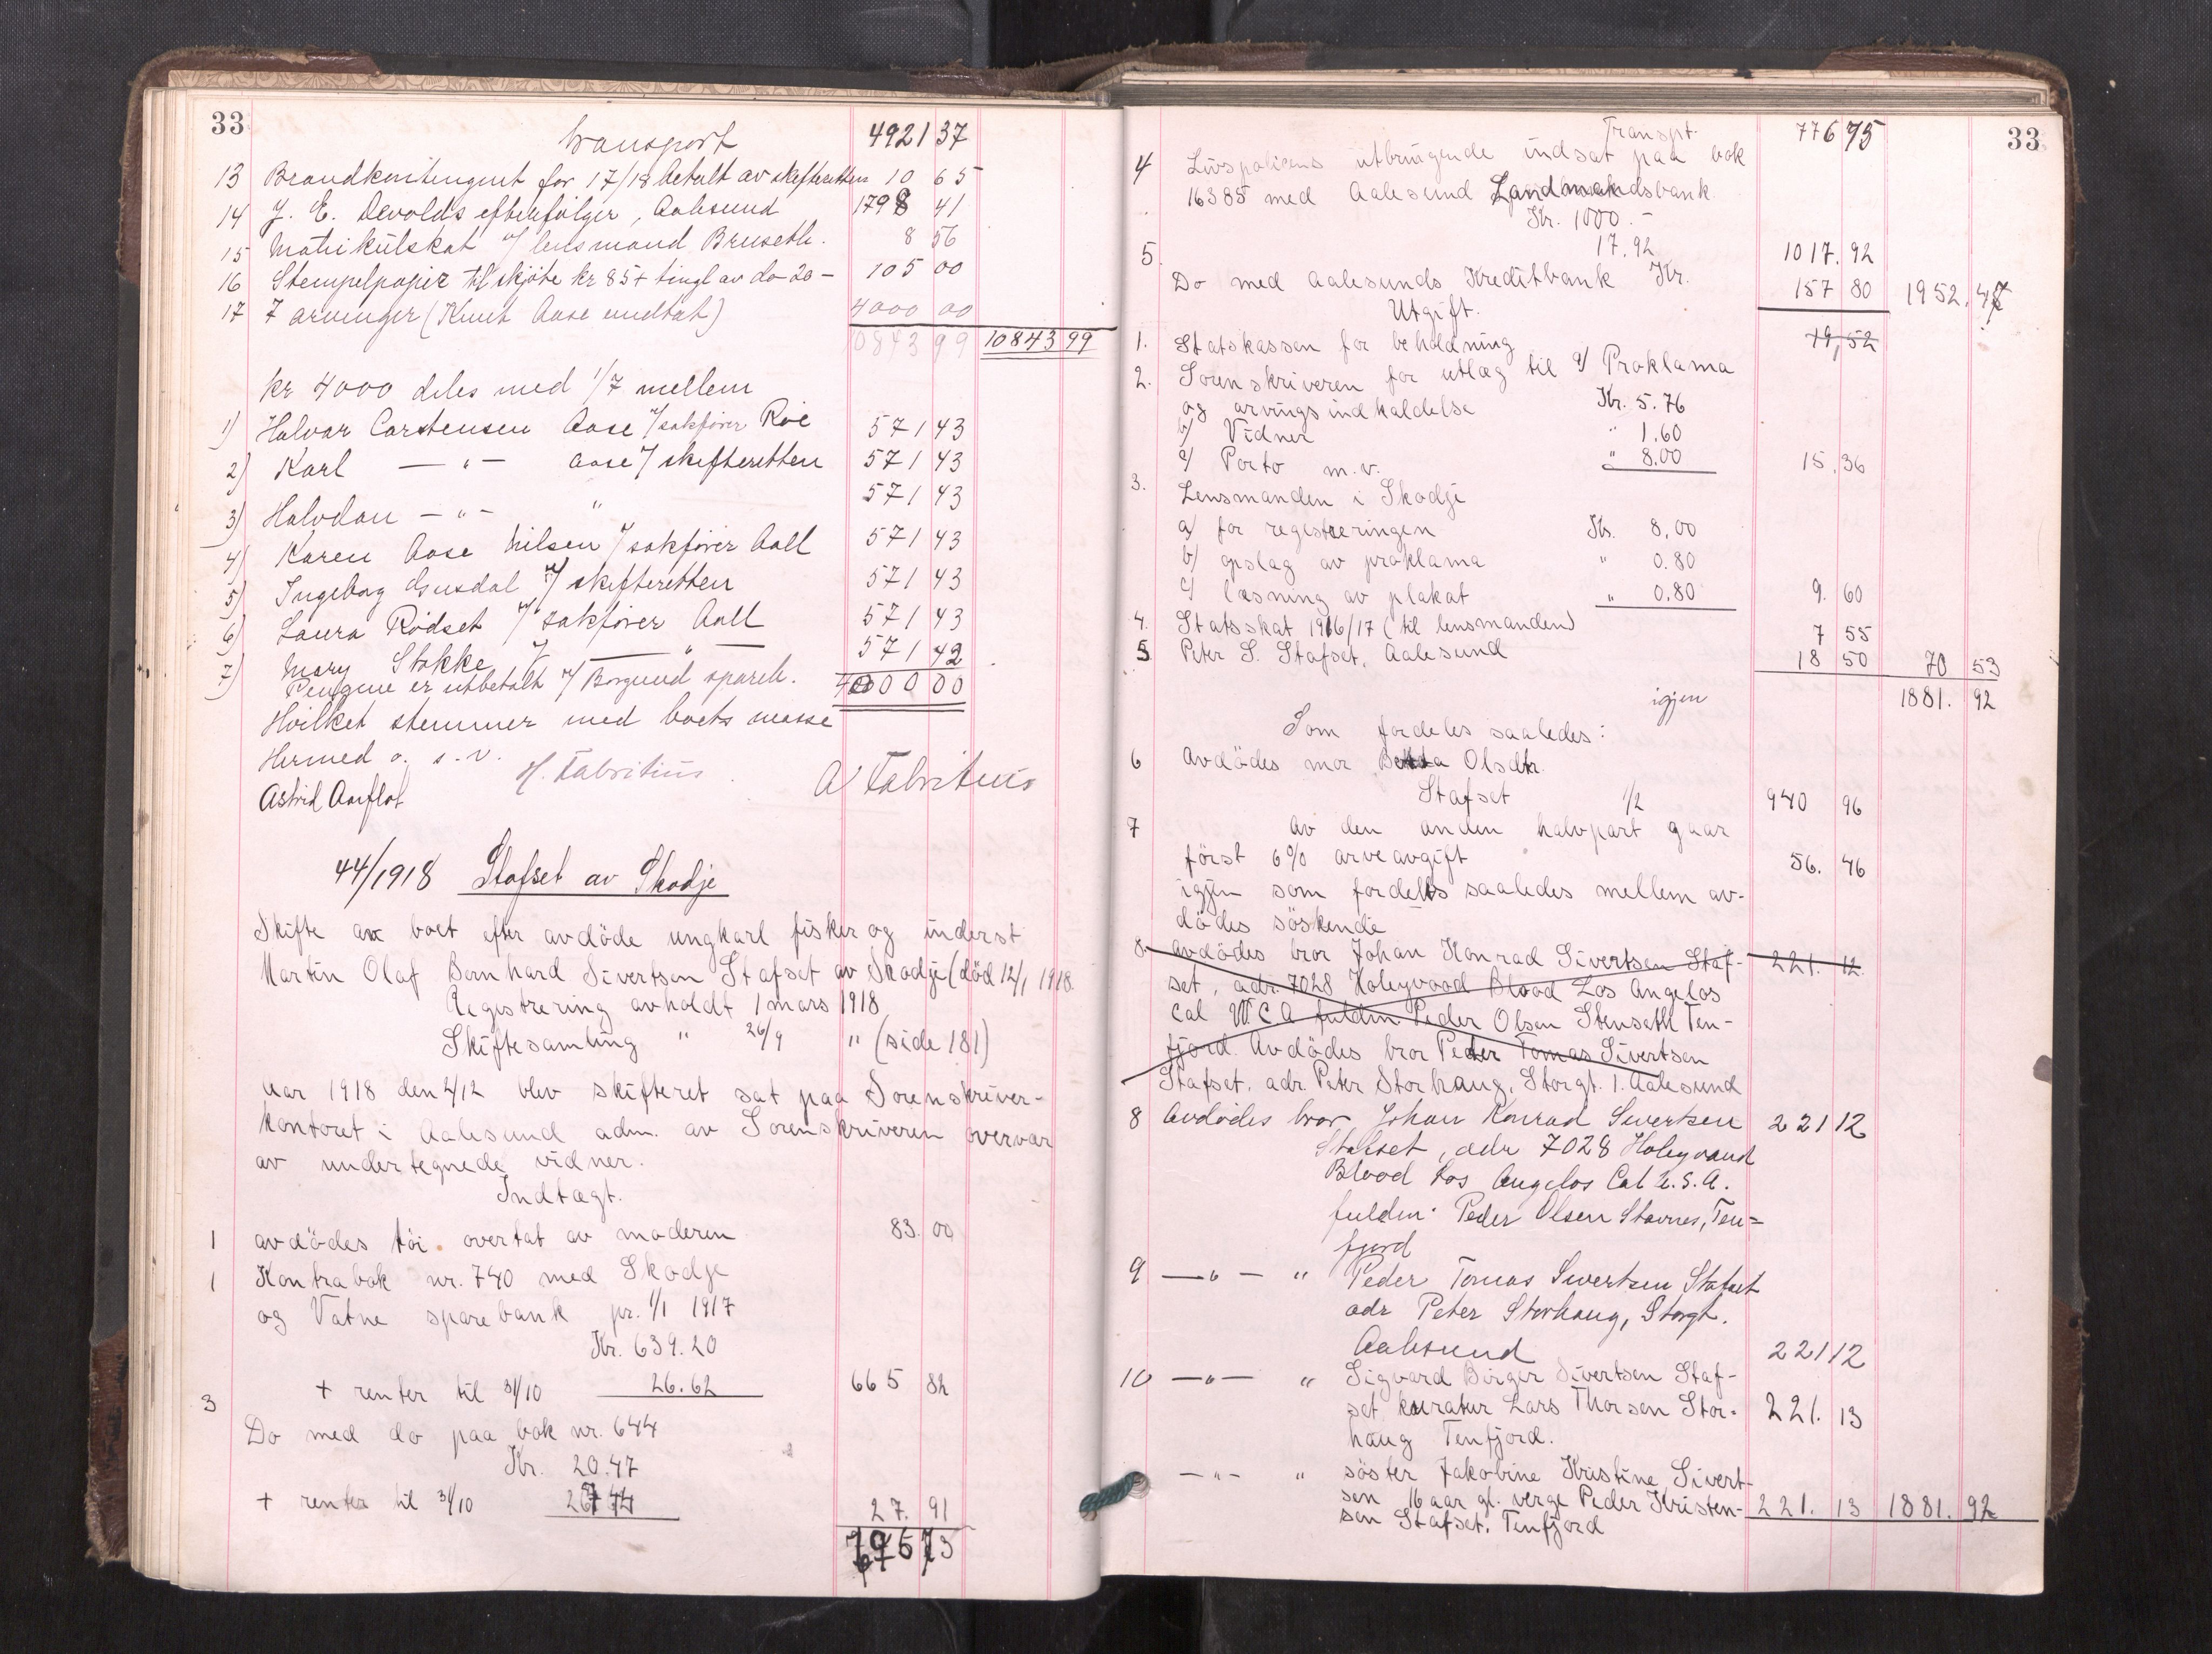 33
transport 4921 37
13 Brandkontingent for 17/18 betalt av skifteretten 10 65
14 J. E. Devolds efterfølger, Aalesund 1798 41
15 Matrikulskat v/ lensmand Bruseth. 8 56
16 Stempelpapir til skjøte kr 85 + tingl av do 20 – 105 00
17 7 arvinger (Knut Aase undtat) 4000 00
10843 99 10843 99
kr 4000 deles med 1/7 mellem
1) Halvar Carstensen Aase v/ sakfører Roe 571 43
2) Karl — " — Aase v/ skifteretten 571 43
3) Halvdan — " — " 571 43
4) Karen Aase Nilsen v/ sakfører Aall 571 43
5) Ingeborg Gusdal v/ skifteretten 571 43
6) Laura Rødset v/ sakfører Aall 571 43
7) Mary Stokke v/ — " — 571 42
Pengene er utbetalt v/ Borgund spareb. 4000 00
Hvilket stemmer med boets masse
Hermed o. s. v.
H. Fabritius. A Fabritius
Astrid Aarflot
44/1918 Stafset av Skodje
Skifte av boet efter avdöde ungkarl fisker og inderst
Martin Olaf Bernhard Sivertsen Stafset av Skodje (död 12/1 1918.
Registrering avholdt 1 mars 1918
Skiftesamling " 26/9 " (side 181)
Aar 1918 den 2/12 blev skifteret sat paa Sorenskriver-
kontoret i Aalesund adm. av Sorenskriveren overvær
av undertegnede vidner.
Indtægt.
1 avdödes töi overtat av moderen 83. 00
1 Kontrabok nr. 740 med Skodje
og Vatne sparebank pr. 1/1 1917
Kr. 639.20
+ renter til 31/10 26.62 665 82
3
Do med do paa bok nr. 644
Kr. 20.47
+ renter til 31/10 7 44 27. 91
776 73
33
Transpt. 776 75
4 Livspolicens utbringende indsat paa bok
16385 med Aalesund Landmandsbank
Kr. 1000.-
17.92 1017. 92
5.
Do med Aalesunds Kreditbank Kr. 157 80 1952. 47
Utgift.
1. Statskassen for beholdning 19,52
2. Sorenskriveren for utlæg til a/ Proklama
og arvingsindkaldelse Kr. 5.76
b/ Vidner " 1.60
c/ Porto m.v. " 8.00 15. 36
3. Lensmanden i Skodje
a/ for registreringen Kr. 8.00
b/ opslag av proklama " 0.80
c/ læsning av plakat " 0.80 9. 60
4. Statsskat 1916/17 (til lensmanden) 7 55
5 Peter S. Stafset, Aalesund 18 50 70 53
igjen 1881. 92
Som fordeles saaledes:
6 Avdödes mor Olsdtr.
Stafset 1/2 940 96
7 Av den anden halvpart gaar
först 6% arveavgift 56. 46
igjen som fordeles saaledes mellem av-
dödes söskende
8. Avdödes bror Johan Konrad Sivertsen Staf- 221. 12.
set, adr. 7028 Holeyvood Blood Los Angelos
Cal U.S.A fuldm Peder Olsen Stenseth Ten-
fjord. Avdödes bror Peder Tomas Sivertsen
Stafset. adr. Peter Storhaug, Storgt. 1. Aalesund
8 Avdödes bror Johan Konrad Sivertsen 221 12
Stafset, adr 7028 Holeyvaud
Blood Los Angelos Cal U.S.A.
fuldm. Peder Olsen Stavnes, Ten=
fjord
9 — " — " Peder Tomas Sivertsen Stafset
adr Peter Storhaug, Storgt.
Aalesund 221 12
10 — " — " Sigvard Birger Sivertsen Staf-
set kurator Lars Thorsen Stor- 221. 13
haug Tenfjord.
— " — " söster Jakobine Kristine Sivert-
sen 16 aar gl. verge Peder Kristen- 221. 13 1881. 92
sen Stafset. Tenfjord